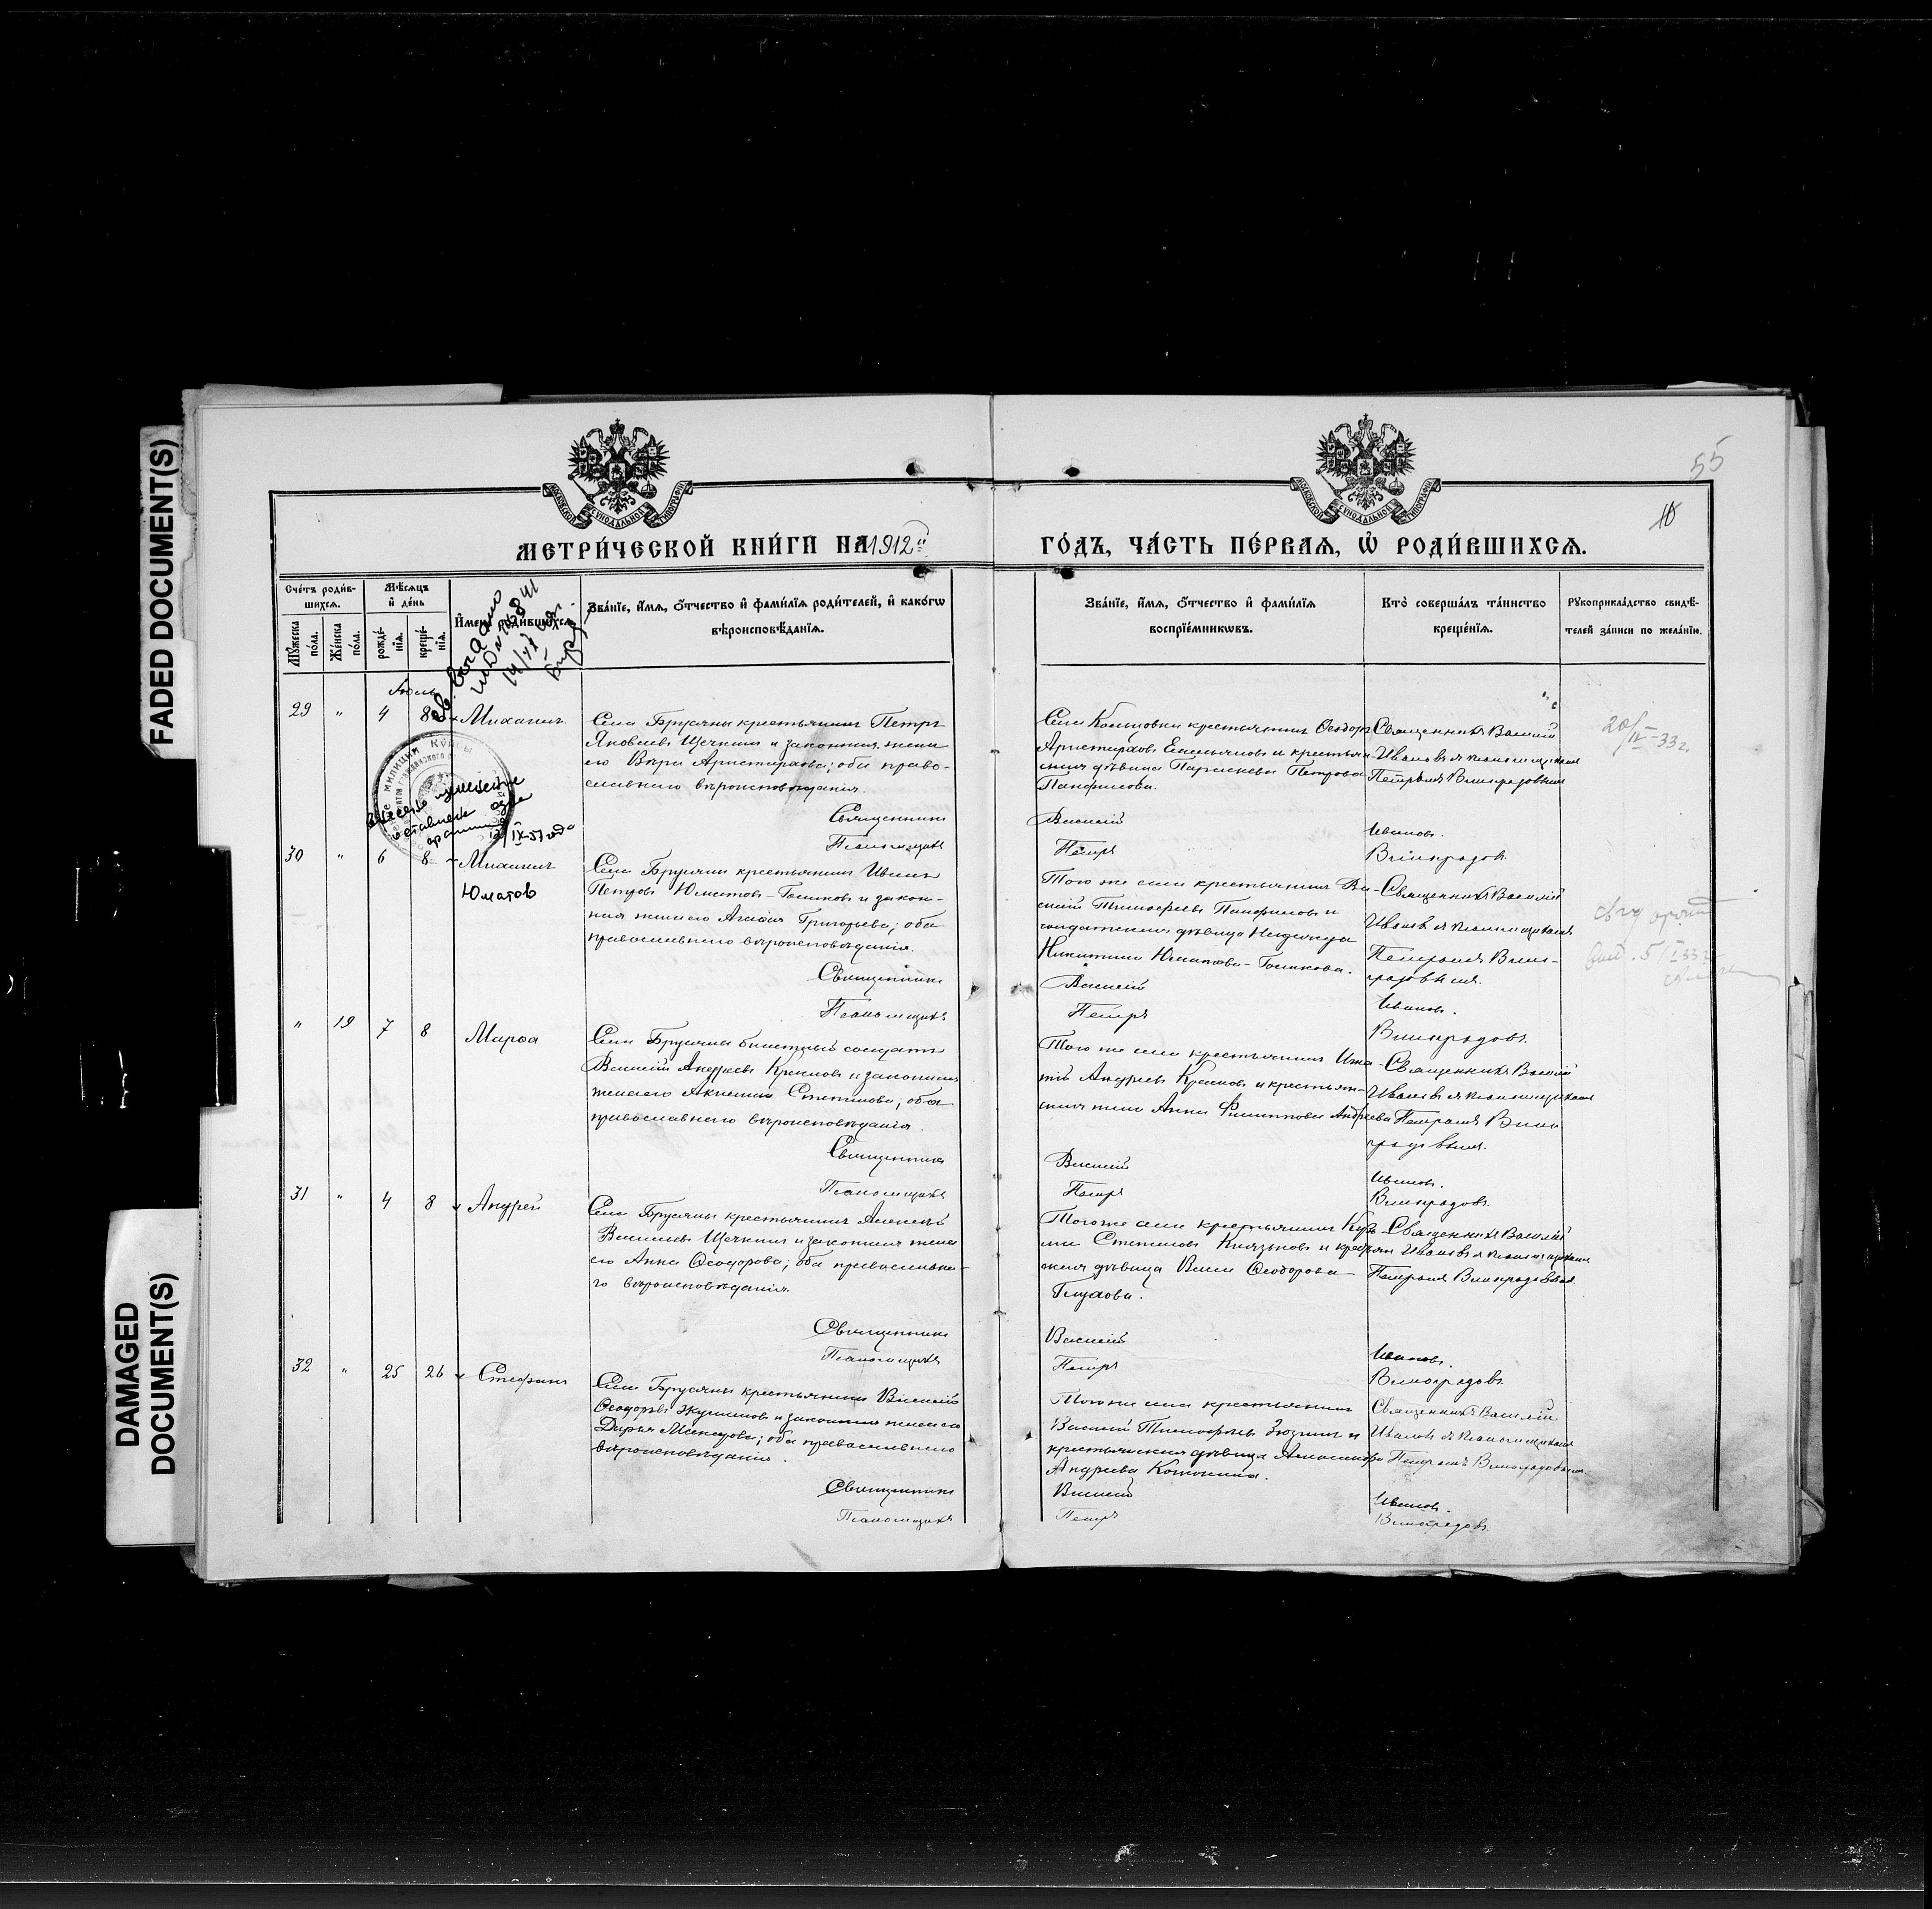 FADED DOCUMENT(S)
DAMAGED DOCUMENT(S)
55
10
МЕТРИ́ЧЕСКОЙ КНИ́ГИ НА 1912й
ГО́ДЪ, ЧА́СТЬ ПЕ́РВАЯ, Ѡ҆ РОДИ́ВШИХСЯ.
Сче́тъ роди́в-
шихся.
Мѣ́сяцъ
и҆ де́нь
Мꙋ́жеска по́ла.
Же́нска по́ла.
рожде́-
нїя.
креще́-
нїя.
И҆мена̀ роди́вшихся.
Зва́нїе, и҆́мя, ѻ҆́тчество и҆ фами́лїя роди́телей, и҆ како́гѡ
вѣроисповѣ́данїя.
Зва́нїе, и҆́мя, ѻ҆́тчество и҆ фами́лїя
воспрїе́мникѡвъ.
Кто̀ соверша́лъ та́инство
креще́нїя.
Рꙋкоприкла́дство свидѣ́-
телей за́писи по жела́нїю.
Св. выдано
Іюль
29 " 4 8 Михаилъ
Села Брусяны крестьянинъ Петръ
Яковлевъ Щечкинъ и законная жена
его Вѣра Аристархова; оба право-
славнаго вѣроисповѣданія.
Священникъ
Псаломщикъ
Села Кольцовки крестьянинъ Ѳеодоръ
Аристарховъ Емельяновъ и крестьян-
ская дѣвица Параскева Петрова
Панфилова.
Василій
Петръ
Священникъ Василій
Ивановъ и псаломщикъ
Петръ Виноградовъ
Ивановъ.
Виноградовъ
20/IV-33 г.
внесено изменение
IX-57 года
30 " 6 8 Михаилъ
Юматов
Села Брусяны крестьянинъ Иванъ
Петровъ Юматовъ-Голиковъ и закон-
ная жена его Агаѳія Григорьева; оба
православнаго вѣроисповѣданія.
Священникъ
Псаломщикъ
Того же села крестьянинъ Ва-
силій Тимоѳеевъ Панфиловъ и
солдатская дѣвица Надежда
Никитина Юматова-Голикова.
Василій
Петръ
Священникъ Василій
Ивановъ и псаломщикъ
Петръ Вино-
градовъ
Ивановъ.
Виноградовъ
5/I 33 г
" 19 7 8 Марѳа
Села Брусяны билетный солдатъ
Василій Андреевъ Краковъ и законная
жена его Акилина Степанова, оба
православнаго вѣроисповѣданія.
Священникъ
Псаломщикъ
Того же села крестьянинъ Игна-
тій Андреевъ Краковъ и крестьян-
ская жена Анна Филиппова Андреева
Василій
Петръ
Священникъ Василій
Ивановъ и псаломщикъ
Петръ Вино
градовъ
Ивановъ.
Виноградовъ
31 " 4 8 Андрей
Села Брусяны крестьянинъ Алексѣй
Васильевъ Щечкинъ и законная жена
его Анна Ѳеодорова; оба православна-
го вѣроисповѣданія.
Священникъ
Псаломщикъ
Того же села крестьянинъ Кузь-
ма Степановъ Князьковъ и крестьян
ская дѣвица Ѳеодорова
Глухова.
Василій
Петръ
Священникъ Василій
Ивановъ и псаломщикъ
Петръ Виноградовъ
Ивановъ.
Виноградовъ
32 " 25 26 Стефанъ
Села Брусяны крестьянинъ Василій
Ѳеодоровъ и законная жена его
Дарья; оба православнаго
вѣроисповѣданія.
Священникъ
Псаломщикъ
Того же села крестьянинъ
Василій Тимоѳеевъ Зюзинъ и
крестьянская дѣвица Александра
Андреева
Василій
Петръ
Священникъ Василій
Ивановъ и псаломщикъ
Петръ Виноградовъ
Ивановъ.
Виноградовъ